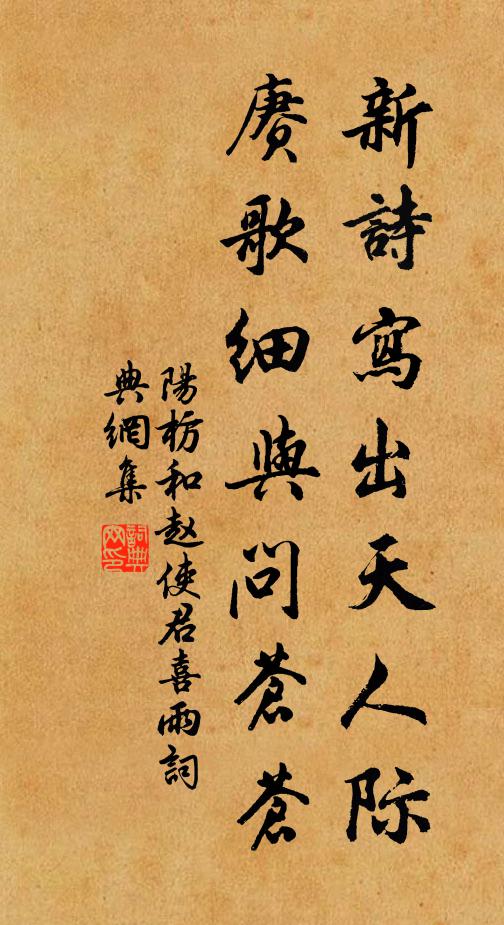 新詩寫出天人际
賡歌細與問蒼蒼
陽枋和赵使君喜雨詞
典網集
詞典
网印